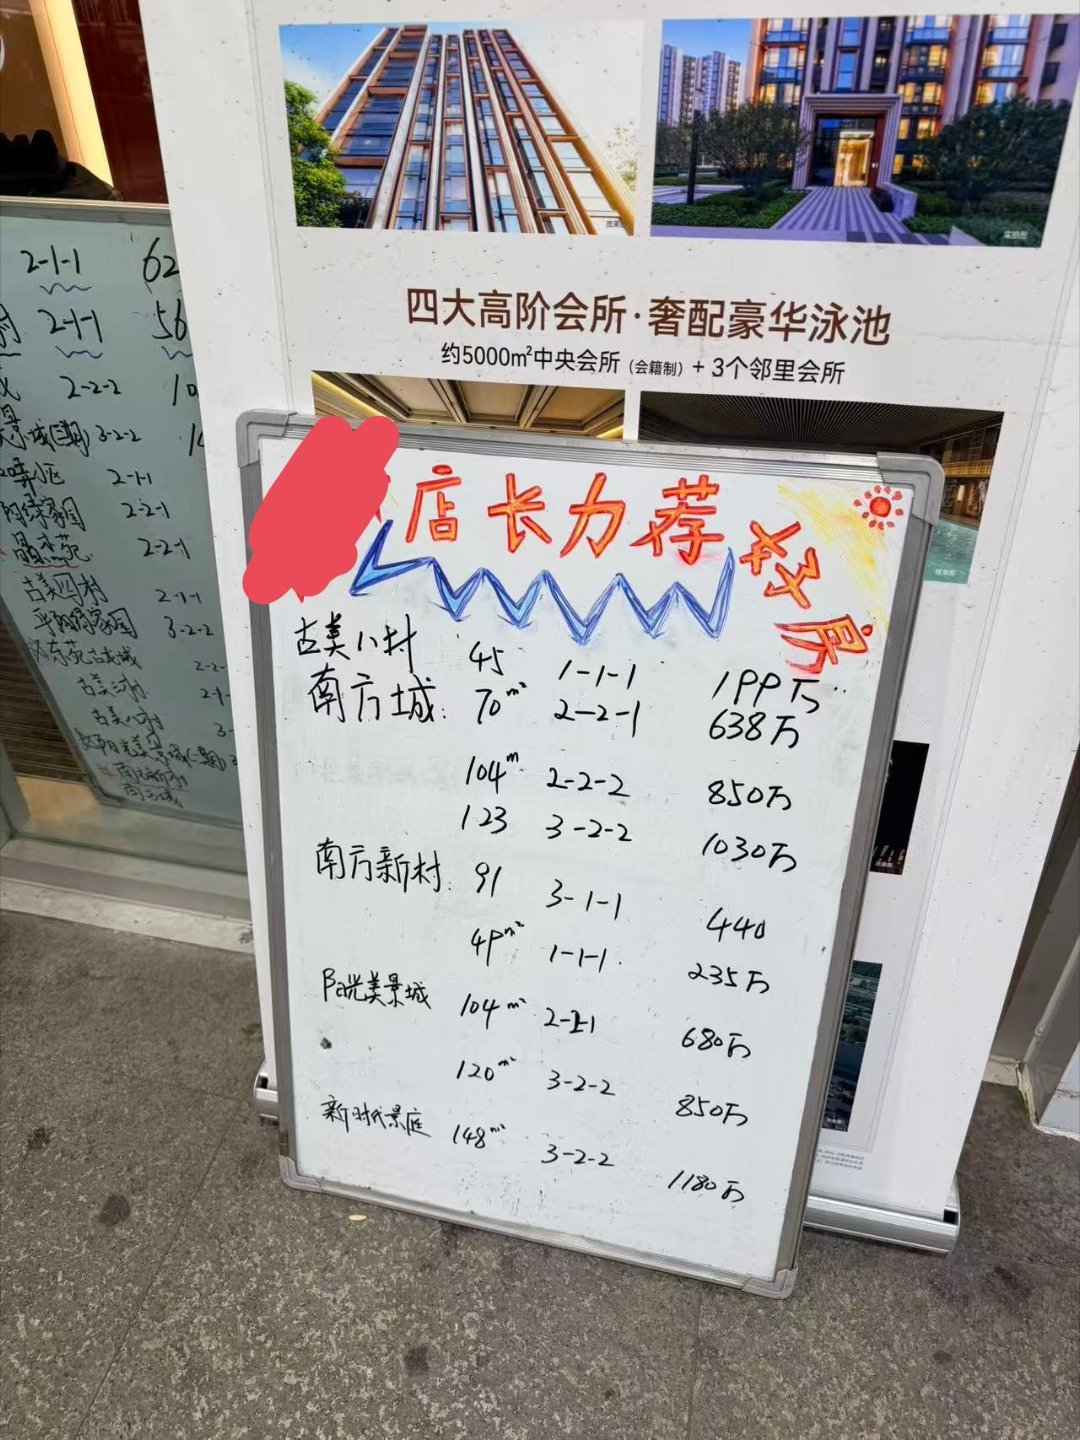 效果图
实拍图
四大高阶会所·奢配豪华泳池
约5000㎡中央会所（会籍制）+ 3个邻里会所
效果图
店长力荐好房
古美八村 45 1-1-1 199万
南方城: 70m² 2-2-1 638万
104m² 2-2-2 850万
123 3-2-2 1030万
南方新村: 91 3-1-1 440
49m² 1-1-1 235万
阳光美景城 104m² 2-2-1 680万
120m² 3-2-2 850万
新时代景庭 148m² 3-2-2 1180万
2-1-1 62
2-1-1 56
2-2-2 10
景城(三期) 3-2-2 1
2-1-1
2-2-1
2-2-1
古美四村 2-1-1
平阳绿家园 3-2-2
东苑古龙城 2-2-
古美三村 2-1-
古美八村 3-
阳光美景城(二期) 3
南方新村
南方城